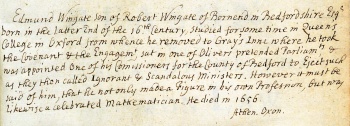 Edmund Wingate Son of Robert Wingate of Bornend in Bedfordshire Esqr
born in the latter End of the 16th Century, Studied for some time in Queens
College in Oxford from whence he removed to Gray's Inne where he took
the Covenant & the Engagemt sat in one of Olivers pretended Parliamts &
was appointed One of his Comissioners for the County of Bedford to Eject such
as they then called Ignorant & Scandalous Ministers. However it must be
said of him, that he not only made a Figure in his own Profession, but was
likewise a celebrated Mathematician. He died in 1656.
Athen. Oxon.